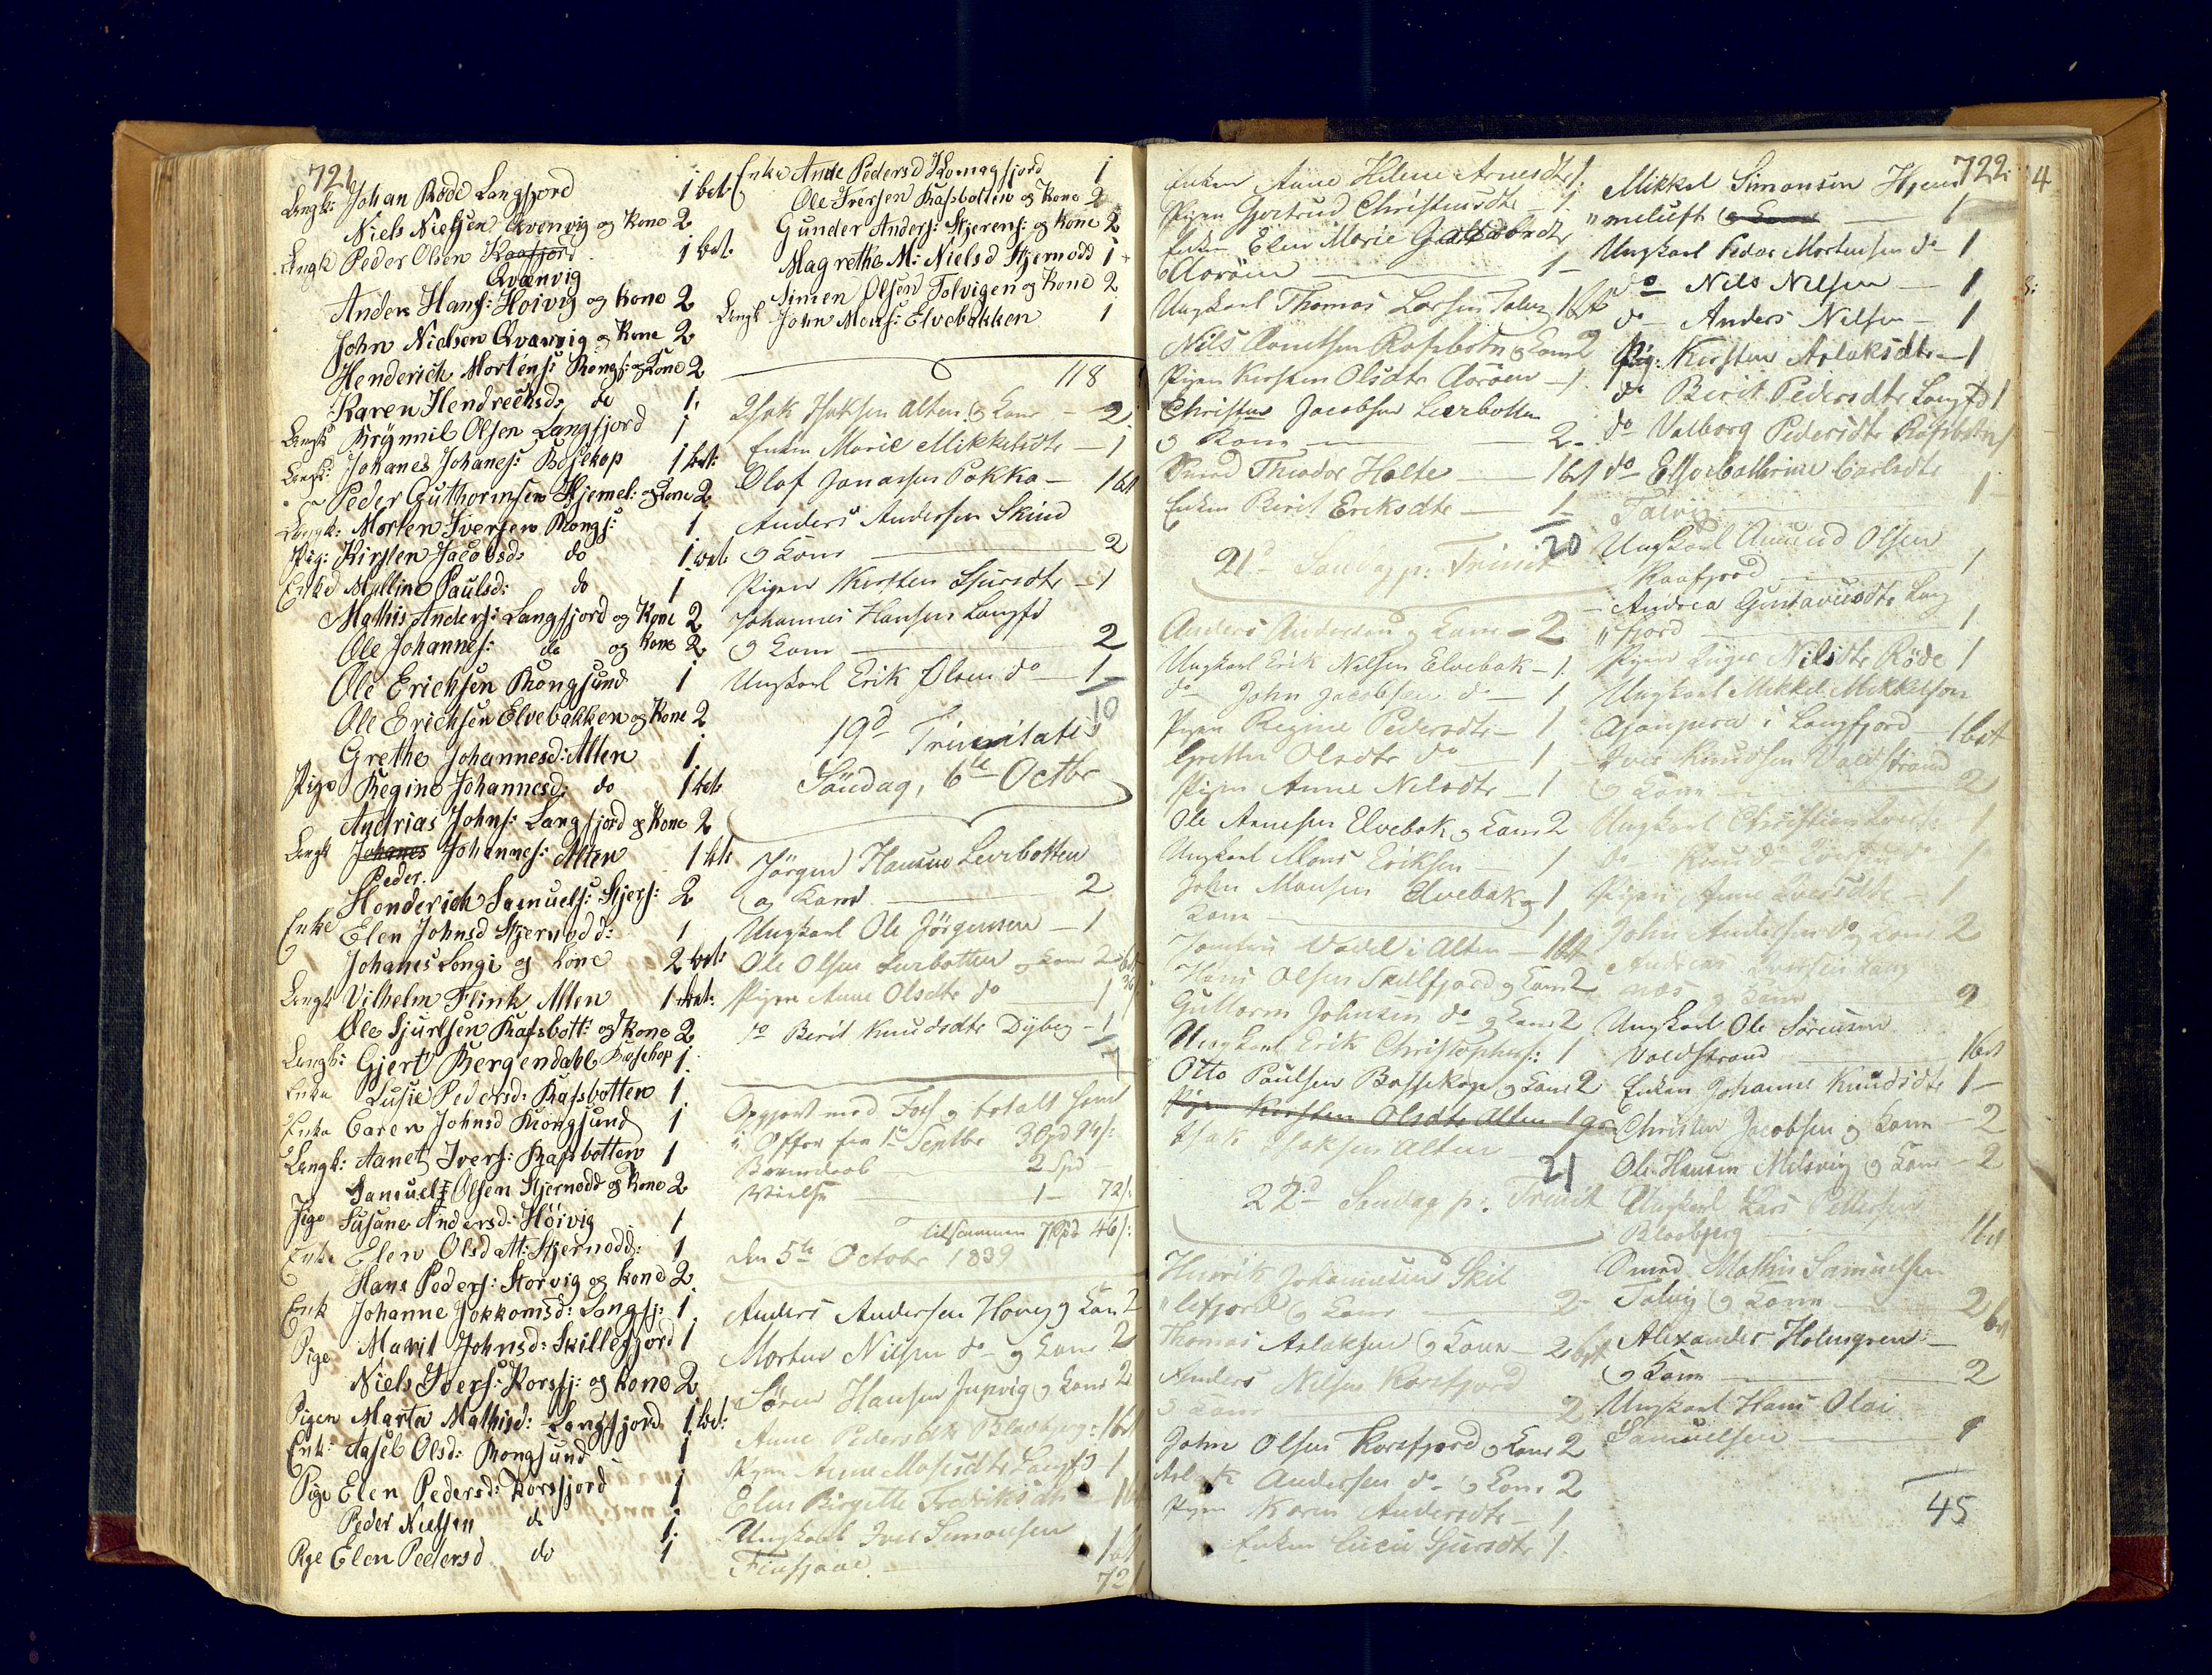 721
Ungk: Johan Røde Langfjord 1 bet
Niels Nielsen Qvenvig og Kone 2
Ungk Peder Olsen Kaafjord 1 bet.
Qvænvig
Anders Hans: Hoivig og Kone 2
John Nielsen Qvænvig og Kone 2
Henderich Mortens: Rongs: og Kone 2
Karen Hendrechsd: do 1.
Ungk Brynnil Olsen Langfjord 1
Ungk: Johanes Johanes: Bosekop 1 bet:
Peder Guthormsen Stjernel: og Kone 2
Ungk: Morten Iversen Rongs: 1
Pig: Kirsten Jacobsd: do 1 bet
Enke Mylline Paulsd: do 1
Mathis Anders: Langfjord og Kone 2
Ole Johannes: do og Kone 2
Ole Erichsen Rongsund 1
Ole Erichsen Elvebakken og Kone 2
Grethe Johannesd: Alten 1
Pige Regine Johannesd: do 1 bet
Andrias Johns: Langfjord og Kone 2
Ungk Johanes Johannes: Alten 1 bet
Peder.
Henderich Samuels: Stjers: 2
Enke Elen Johnsd Stjernødd: 1
Johanes Longi og Kone 2 bet:
Ungk Vilhelm Flink Alten 1 bet:
Ole Sjursen Kafsbott: og Kone 2
Ungk: Gjert Bergendahl Bosekop 1.
Enke Lusie Pedersd: Kafsbotten 1
Enke Caren Johnsd Rongsund 1
Ungk: Aanet Ivers: Kafsbotten 1
Samuel Olsen Stjernødd og Kone 2
Pige Susane Andersd: Höivig 1
Enke Elen Olsdatt: Stjernødd: 1
Hans Peders: Storvig og Kone 2
Enk Johanne Jokkomsd: Langfj: 1
Pige Marit Johnsd: Skillefjord 1
Niels Ivers: Korsfj: og Kone 2
Pigen Marta Mathisd: Langfjord 1 bet:
Enk: Aaseb Olsd: Rongsund 1
Pige Elen Pedersd: Korsfjord 1
Peder Nielsen do 1.
Pige Elen Pedersd do 1
Enke Ane Pedersd Komagfjord 1
Ole Iversen Kafsbotten og Kone 2
Gunder Anders: Stjerens: og Kone 2
Magrethe M: Nielsd Stjernødd 1
Simen Olsen Talvigen og Kone 2
Ungk John Mons: Elvebakken 1
118
Isak Isaksen Alten og Kone - 2
Enken Marie Mikkelsdtr - 1
Olof Jonassen Pokka - 1 bet
Anders Andersen Skind
og Kone 2
Pigen Kirsten Sjursdtr - 1
Johannes Hansen Langfd
og Kone 2
Ungkarl Erik Olsen do - 1
10
19d Trinitatis
Søndag, 6te Octbr
Jörgen Hansen Leirbotten
og Kone 2
Ungkarl Ole Jörgensen - 1
Ole Olsen Leirbotten og Kone 2 bet
Pigen Anne Olsdtr do 1
do Berit Knudsdtr Dybeg - 1
7
Opgjort med Fos og betalt ham
i Offer fra 1te Septbr 3 Spd 94 s:
Barnedaab 2 Spd
Vielse 1 - 72 s:
tilsammen 7 Spd 46 s:
den 5te Octobr 1839
Anders Andersen Hovig og Kone 2
Morten Nilsen do - og Kone 2
Sören Hansen Jupvig og Kone 2
Anne Pedersdtr Blaabjerg: 1 bet
Pigen Anne Mosesdtr Langfd 1
Elen Birgitte Fredriksdtr
Ungkarl Iver Simonsen
1 bet
721
722
Enken Anne Helene Arnesdtr 1.
Pigen Gjertrud Christensdtr - 1
Enken Elen Marie
Aarøen 1 -
Ungkarl Thomas Larsen Talvig 1 bet
Nils Aanetsen Rafsbotn og Kone 2
Pigen Kirsten Olsdtr Aarøen - 1.
Christen Jacobsen Leerbotten
og Kone 2 -
Smed Theodor Holte 1 bet
Enken Berit Eriksdtr - 1
20
21d Søndag p: Trinit
Anders Andersen og Kone - 2
Ungkarl Erik Nilsen Elvebak - 1.
do John Jacobsen do - 1
Pigen Regine Pedersdtr - 1
Grethe Olsdtr do - 1
Pigen Anne Nilsdtr - 1
Ole Arnesen Elvebak og Kone 2
Ungkarl Mons Eriksen - 1
John Monsen Elvebak og 1
Kone 1
Vadel i Alten - 1 bet
Hans Olsen Skillefjord og Kone 2
Guttorm Johnsen do og Kone 2
Ungkarl Erik Christophers: 1
Otto Paulsen Bossekop og Kone 2
Pigen Kirsten Olsdtr Alten - 1
Isak Isaksen Alten
21
22d Søndag p: Trinit
Henrik Johannesen Skil
"lefjord og Kone 2 -
Thomas Aslaksen og Kone - 2 bet
Anders Nilsen Korsfjord
og Kone 2
John Olsen Korsfjord og Kone 2
Aslak Andersen do - og Kone 2
Pigen Karen Andersdtr - 1
Enken Lucie Sjursdtr 1.
Mikkel Simonsen Hjem
"meluft og Kone 1
Ungkarl Peder Mortensen do - 1
do Nils Nilsen - 1
do - Anders Nilsen - 1
Pig: Kirsten Aslaksdtr - 1
do Berit Pedersdtr Langfd 1
do Valborg Pedersdtr Rafsbotn 1
do Elsecathrine Carlsdtr
Talvig 1 -
Ungkarl Amund Olsen
Kaafjord 1
Andrea Gustavusdtr Lang
"fjord 1
Pigen Inger Nilsdtr Röde 1
Ungkarl Mikkel Mikkelsen
i Langfjord 1 bet
Iver Knudsen Voldstrand
og Kone 2
Ungkarl Christian Iversen 1
do Knud Iversen do 1
Pigen Anne Iversdtr - 1
John Andersen do og Kone 2
Andreas Iversen Lang
næs og Kone 2
Ungkarl Ole Sörensen
Voldstrand 1 bet
Enken Johanne Knudsdtr 1 -
Christen Jacobsen og Kone - 2
Ole Hansen Nilsvig og Kone - 2
Ungkarl Lars Pettersen
Blaabjerg 1 bet
Smed Mathis Samuelsen
Talvig og Kone 2 bet
Alexander Holmgren -
og Kone 2
Ungkarl Hans Olai
Samuelsen 1
45
4